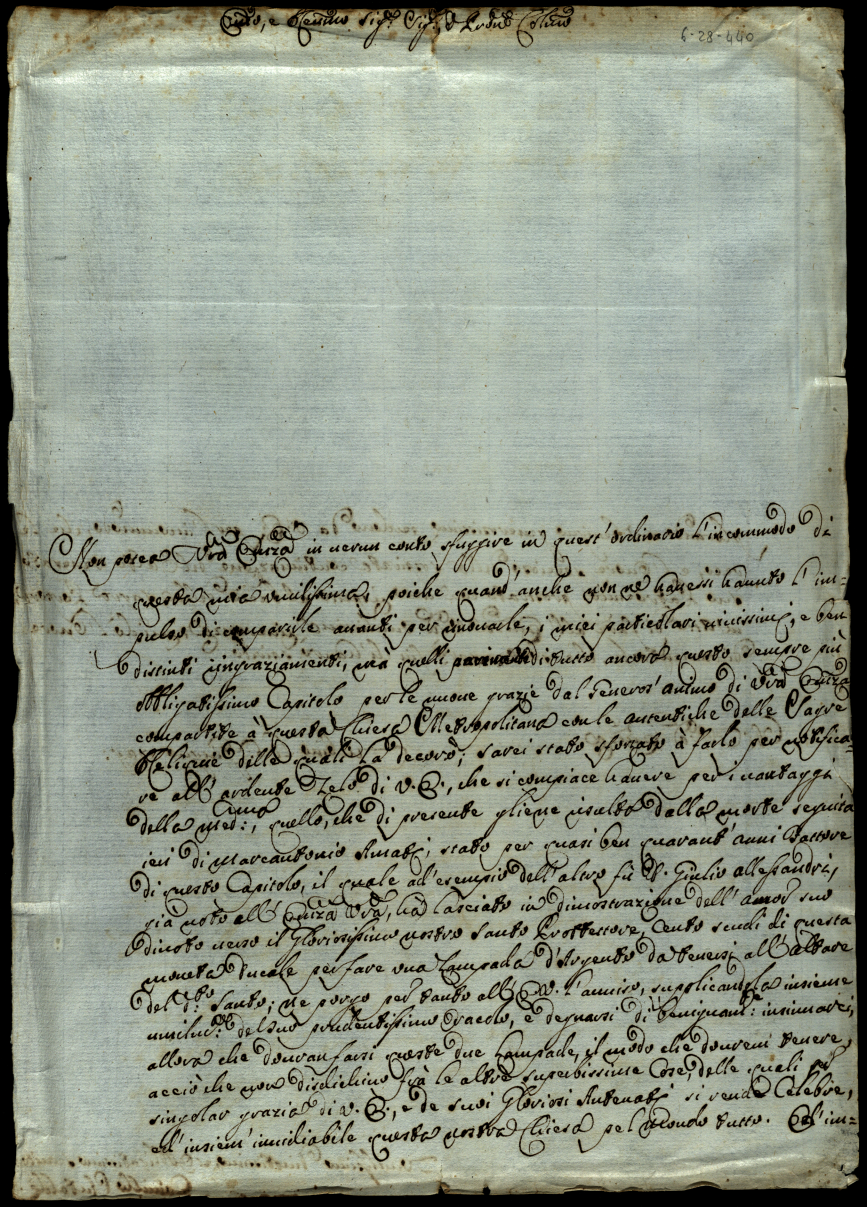 Emo, e Remo Sigr. Sigr. e Prone Colmo
6-28-440
Non potea Vra Emza in uerun conto sfuggire in quest'ordinario l'incommodo di
questa mia umilissima, poiche quand'anche non ne hauessi hauuto l'im=
pulso di comparirle auanti per inuiarle, i miei particolari uiuissimi, e ben
distinti ringraziamenti, mà quelli di tutto ancora questo sempre più
obbligatissimo Capitolo per le nuoue grazie dal Generos'animo di Vra Emza
compartite à questa Chiesa Metropolitana con le autentiche delle Sagre
Reliquie delle quali la decorò; sarei stato sforzato à farlo per notifica=
re all'ardente Zelo di V. E., che si compiace hauere per i uantaggi
della medma:, quello, che di presente gliene risulta dalla morte seguita
ieri di Marcantonio Amati, stato per quasi ben quarant'anni Fattore
di questo Capitolo, il quale ad'esempio dell'altro fù D. Giulio Alessandri,
già noto all'Emza Vra, hà lasciato in dimostrazione dell'amor suo
diuoto uerso il Gloriosissimo nostro Santo Protettore, Cento scudi di questa
moneta ducale per fare una Lampada d'Argento da tenersi all'Altare
del do: Santo; ne porgo per tanto all'E. V. l'auuiso, supplicandola insieme
umilme: del suo prudentissimo Oracolo, e degnarsi di benignamte: insinuarci,
allora che douran farsi queste due Lampade, il modo che douremo tenere,
acciò che non disdichino frà le altre superbissime Cose, delle quali per
singolar grazia di V. E., e de suoi Gloriosi Antenati si rende Celebre,
ed'insiem'inuidiabile questa nostra Chiesa pel Mondo tutto. Coll'im=